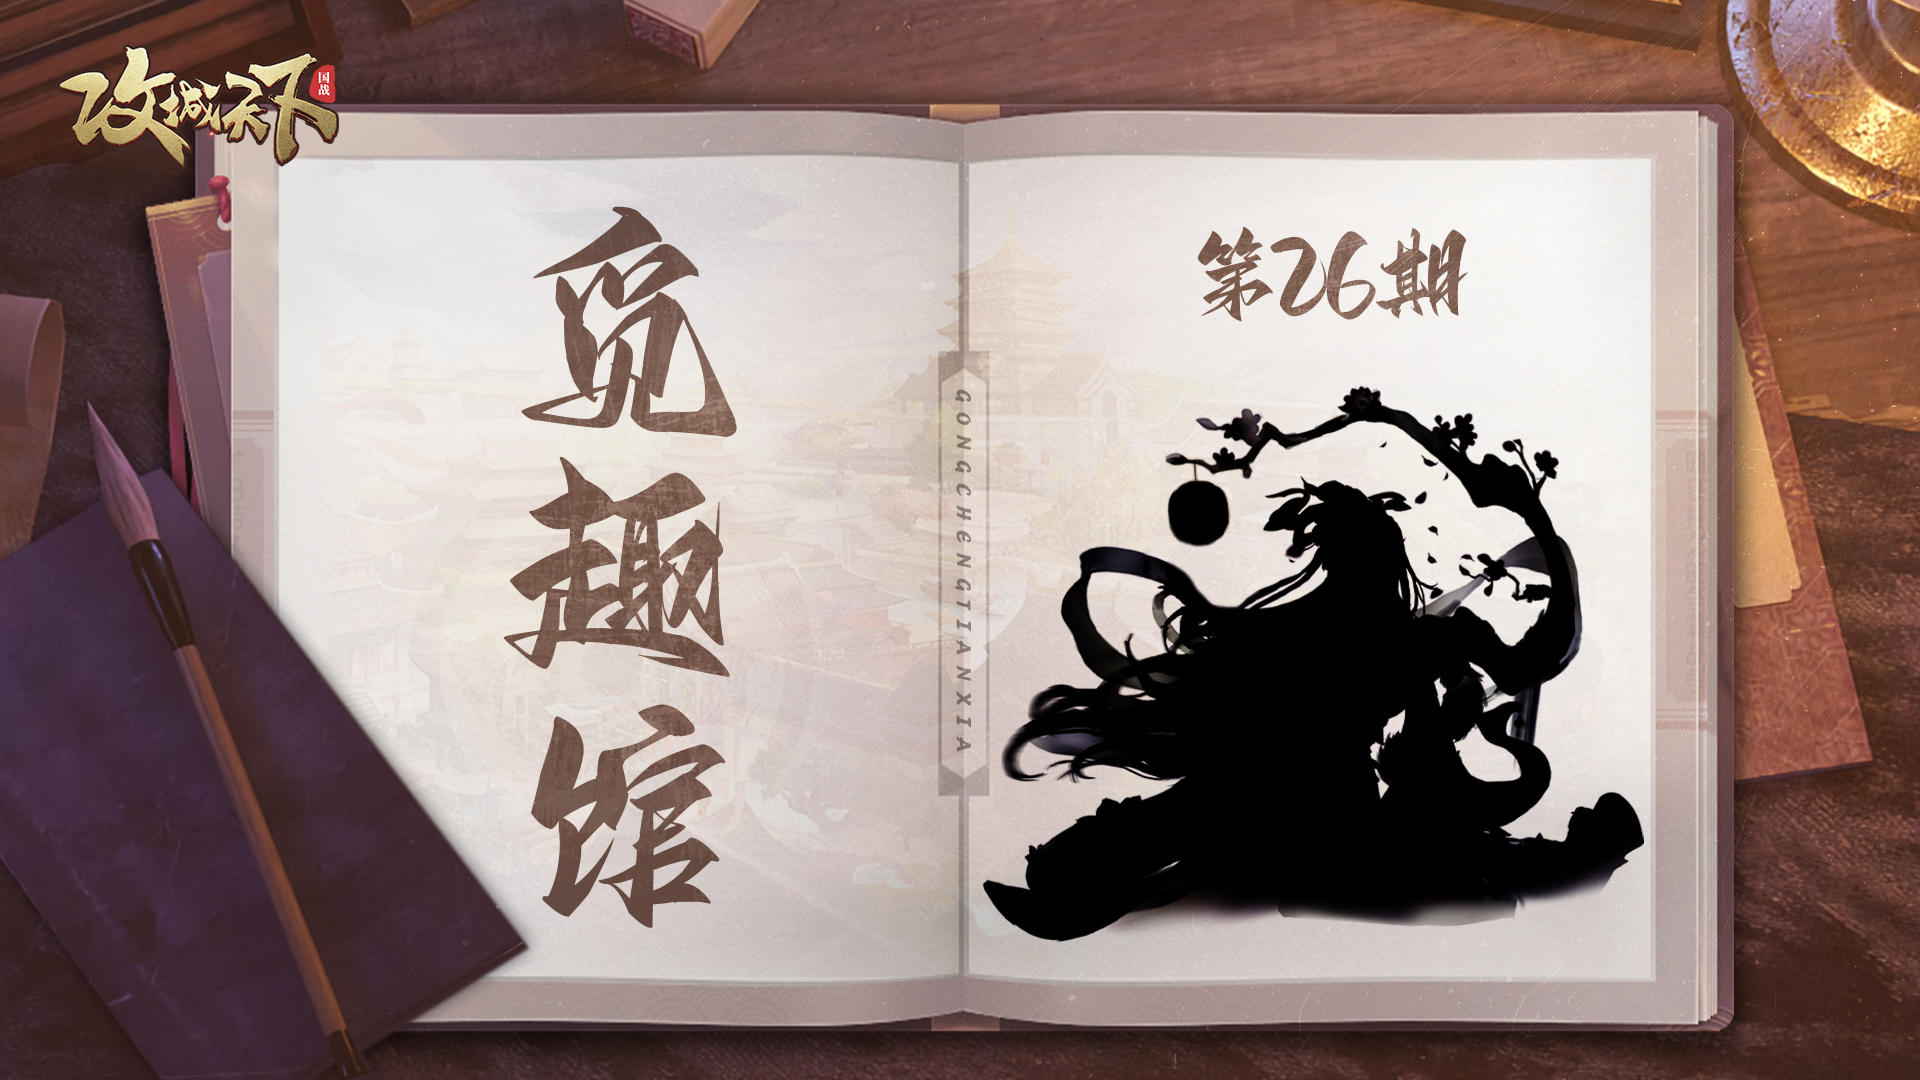 攻城天下
国战
觅趣馆
第26期
GONGCHENGTIANXIA